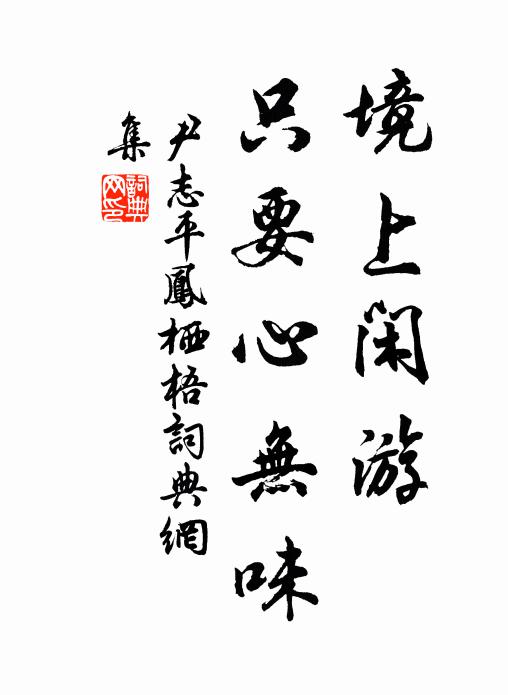 境上閑游
只要心無味
尹志平鳳栖梧詞典網
集
詞典
网印